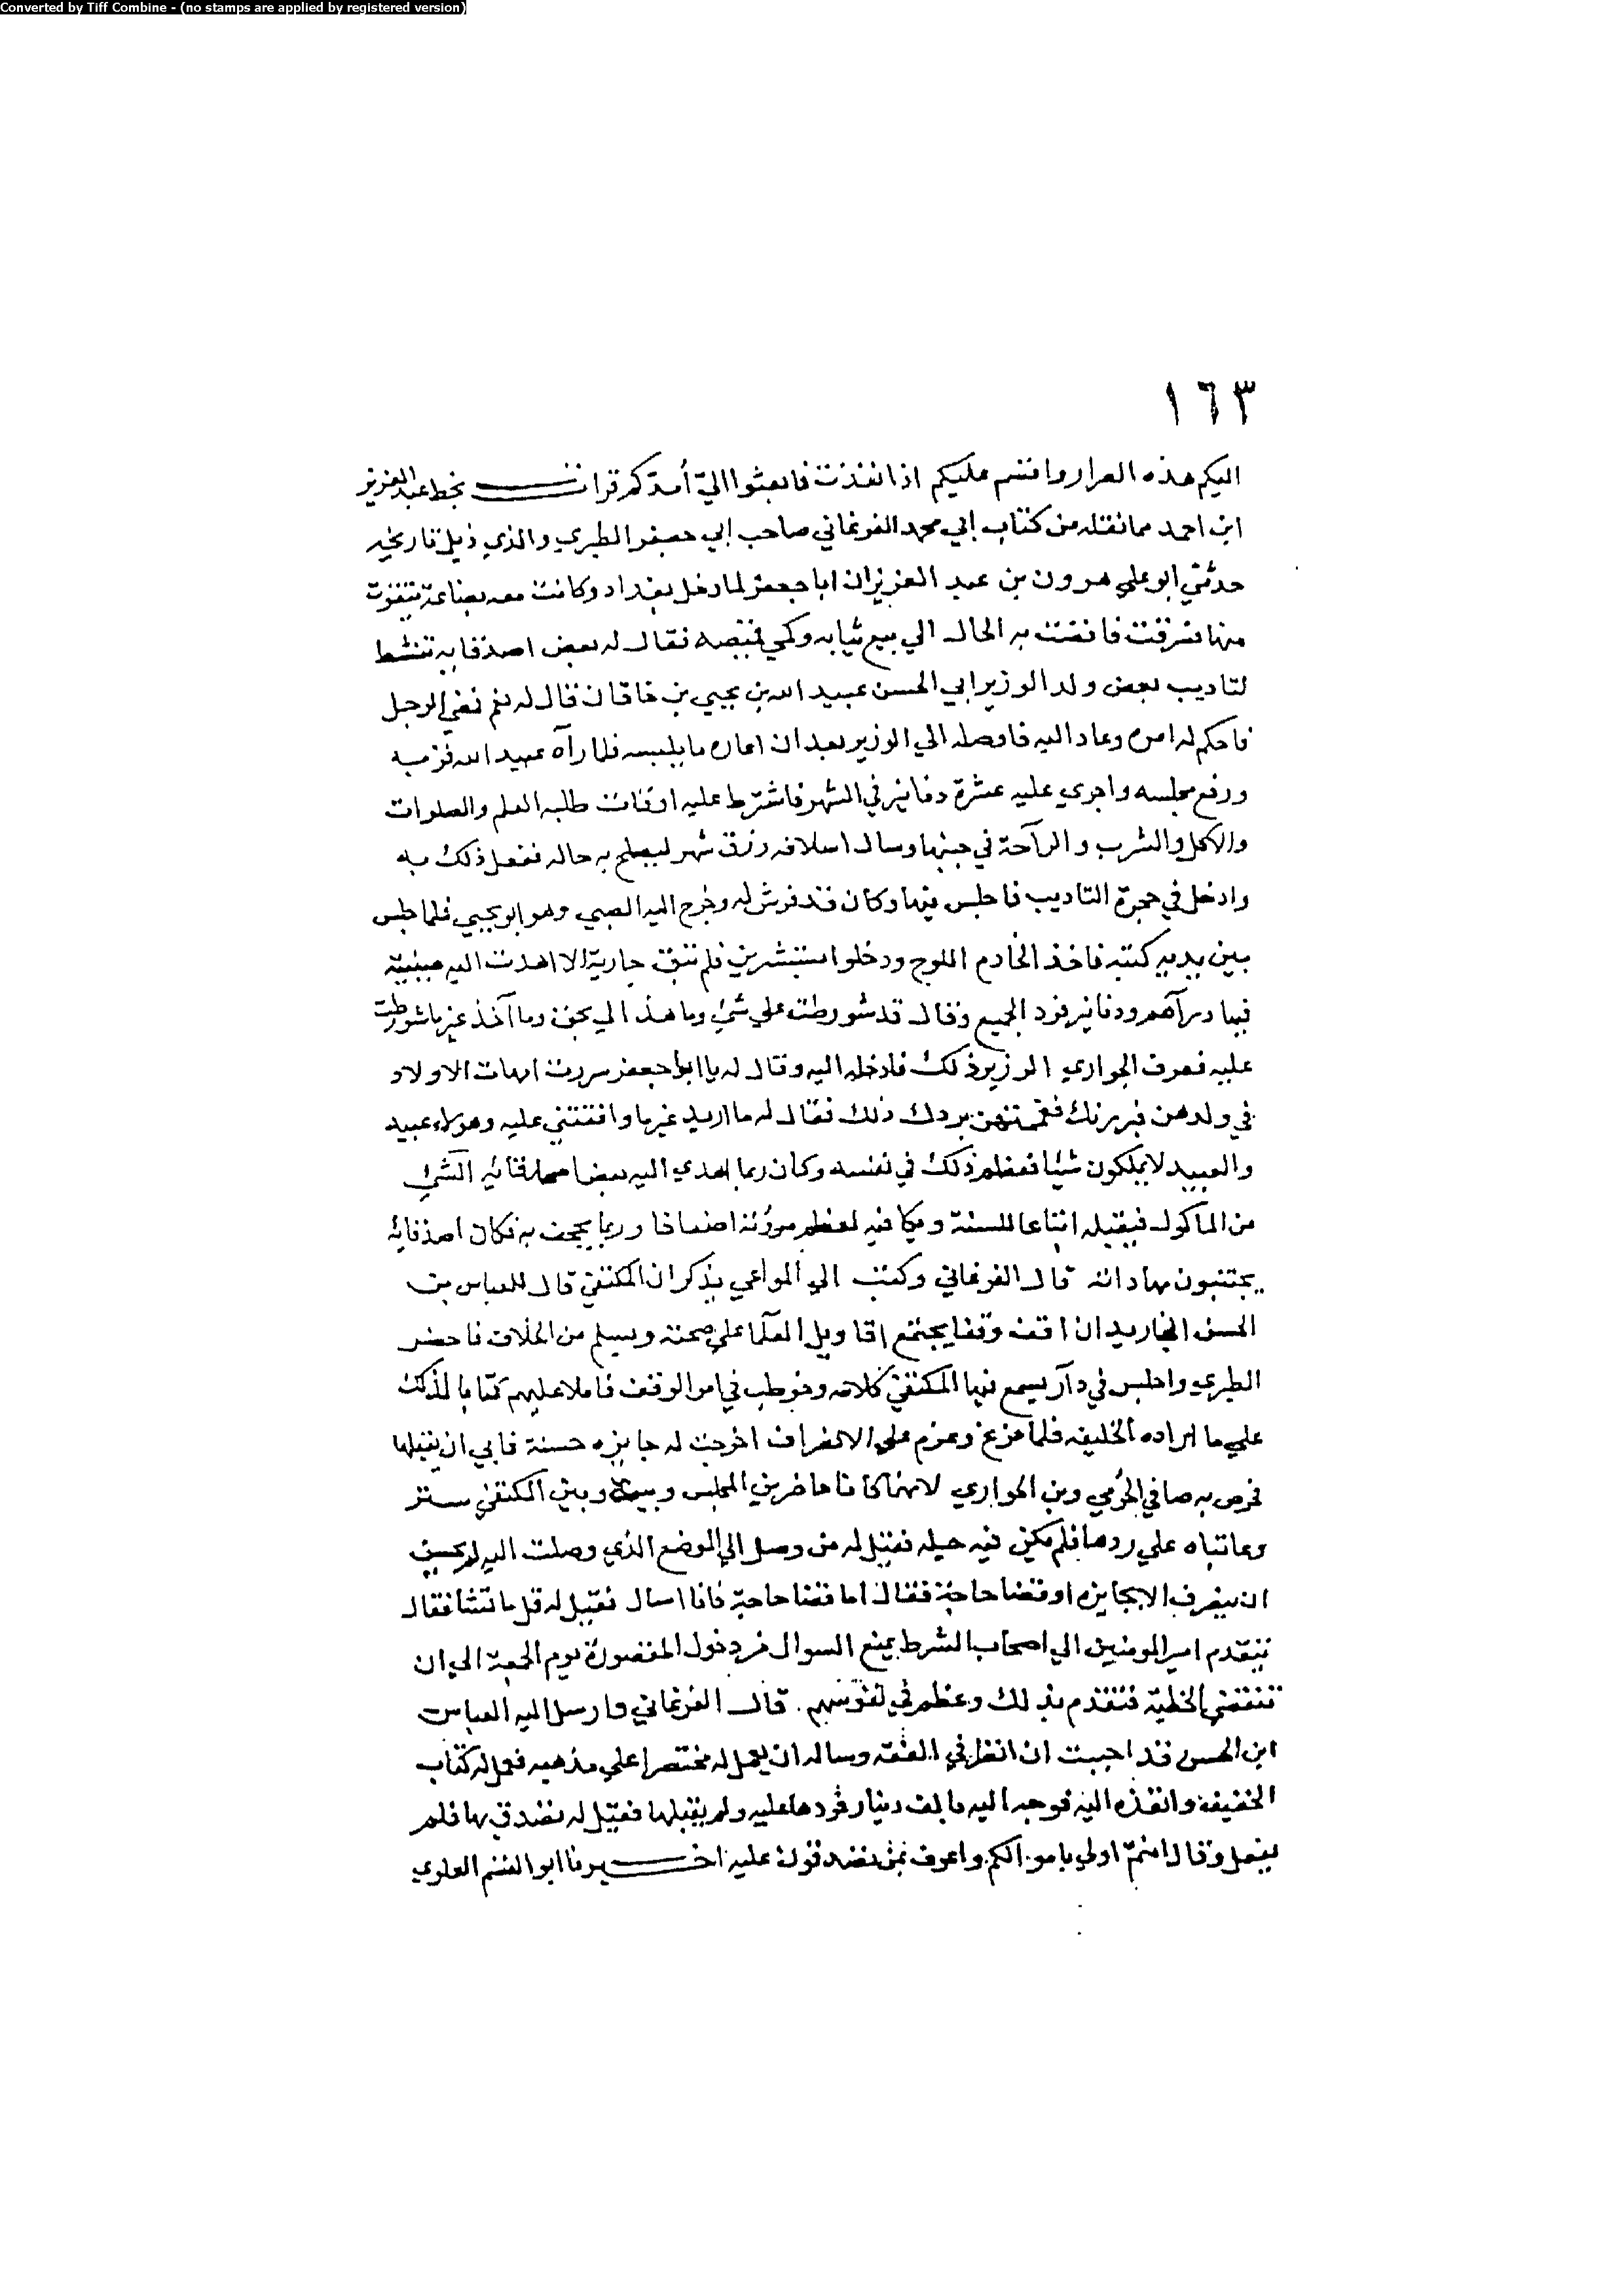 Converted by Tiff Combine - (no stamps are applied by registered version)
١٦٣
اليكم هذه الصرار واقسم عليكم اذا نفذت فابعثوا الي أمدكم قرات بخط عبد العزيز
ابن احمد مما نقله من كتاب ابي محمد الفرغاني صاحب ابي جعفر الطبري والذي ذيل تاريخه
حدثني ابو علي هرون بن عبد العزيز ان ابا جعفر لما دخل بغداد وكانت معه بضاعة يتقوت
منها فسرقت فافضت به الحال الي بيع ثيابه وكمي قميصه فقال له بعض اصدقايه تنشط
لتاديب بعض ولد الوزير ابي الحسن عبيد الله بن يحيي بن خاقان قال له نعم فمضي الرجل
فاحكم له امره وعاد اليه فاوصله الي الوزير بعد ان اعاره ما يلبسه فلما رآه عبيد الله قربه
ورفع مجلسه واجري عليه عشرة دنانير في الشهر فاشترط عليه اوقات طلبه العلم والصلوات
والاكل والشرب والراحة في حينها وسال اسلافه رزق شهر ليصلح به حاله ففعل ذلك به
وادخل في حجرة التاديب فاجلس فيها وكان قد فرش له وخرج اليه الصبي وهو ابو يحيي فلما جلس
بين يديه كتبه فاخذ الخادم اللوح ودخلوا مستبشرين فلم تبق جارية الا اهدت اليه صينية
فيها دراهم ودنانير فرد الجميع وقال قد شورطت علي شئ وما هذا لي بحق وما آخذ غير ما شورطت
عليه فعرف الجواري الوزير ذلك فادخله اليه وقال له يا ابا جعفر سررت امهات الاولاد
في ولدهن فبررنك فغممتهن بردك ذلك فقال له ما اريد غير ما وافقتني عليه وهولاء عبيد
والعبيد لا يملكون شيئا فعظم ذلك في نفسه وكان ربما اهدي اليه بعض اصدقائه الشئ
من الماكول فيقبله اتباعا للسنة ويكافيه لعظم مروئته اضعافا وربما يجحف به فكان اصدقايه
يجتنبون مهاداته قال الفرغاني وكتب الي المراعي يذكر ان المكتفي قال للعباس بن
الحسن اني اريد ان اقف وقفا يجتمع اقاويل العلما علي صحته ويسلم من الخلاف فاحضر
الطبري واجلس في دار يسمع فيها المكتفي كلامه وخوطب في امر الوقف فاملا عليهم كتابا لذلك
علي ما اراده الخليفه فلما فرغ وعزم علي الانصراف اخرجت له جايزه حسنة فابي ان يقبلها
فحرص به صافي الحرمي وبن الحواري لانهما كانا حاضرين المجلس وبينه وبين المكتفي ستر
وعاتباه علي ردها فلم يكن فيه حيله فقيل له من وصل الي الموضع الذي وصلت اليه لم يحسن
ان ينصرف الا بجايزه او قضا حاجة فقال اما قضا حاجة فانا اسال فقيل له قل ما تشا فقال
يتقدم امير المومنين الي اصحاب الشرط بمنع السوال من دخول المقصورة يوم الجمعة الي ان
تنقضي الخطبة فتقدم بذلك وعظم في نفوسهم. قال الفرغاني وارسل اليه العباس
ابن الحسن قد احببت ان انظر في الفقه وساله ان يعمل له مختصرا علي مذهبه فعمل له كتاب
الخفيف وانفذه اليه فوجه اليه بالف دينار فردها عليه ولم يقبلها فقيل له تصدق بها فلم
يفعل وقال انتم اولي باموالكم واعرف بمن تصدقون عليه اخبرنا ابو القسم العلوي